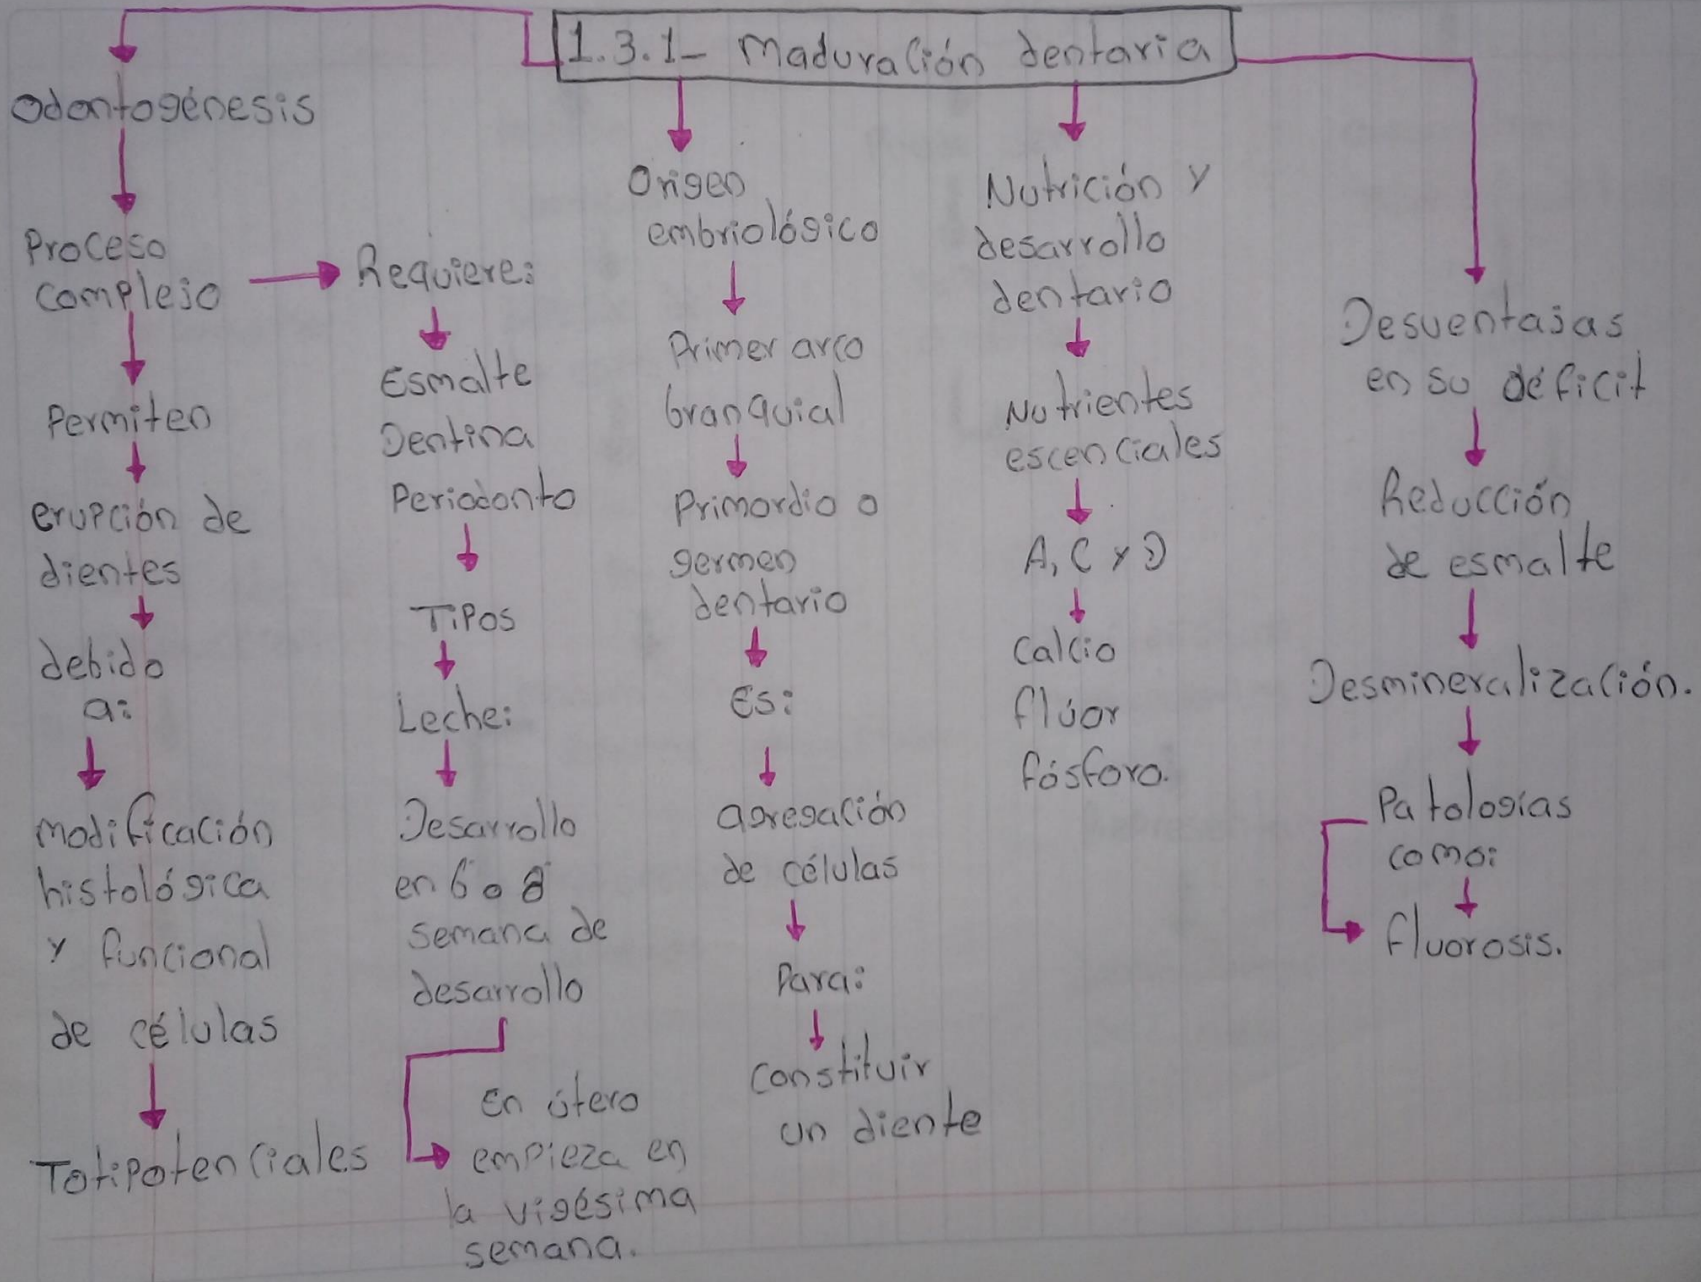 1.3.1- Maduración dentaria
Odontogénesis
Proceso
complejo
Permiten
erupción de
dientes
debido
a:
Modificación
histológica
y funcional
de células
Totipotenciales
Requiere:
Esmalte
Dentina
Periodonto
Tipos
Leche:
Desarrollo
en 6 o 8
semana de
desarrollo
En útero
empieza en
la vigésima
semana.
Origen
embriológico
Primer arco
branquial
Primordio o
germen
dentario
Es:
agregación
de células
Para:
constituir
un diente
Nutrición y
desarrollo
dentario
Nutrientes
escenciales
A, C y D
Calcio
flúor
fósforo.
Desventajas
en su déficit
Reducción
de esmalte
Desmineralización.
Patologías
como:
fluorosis.